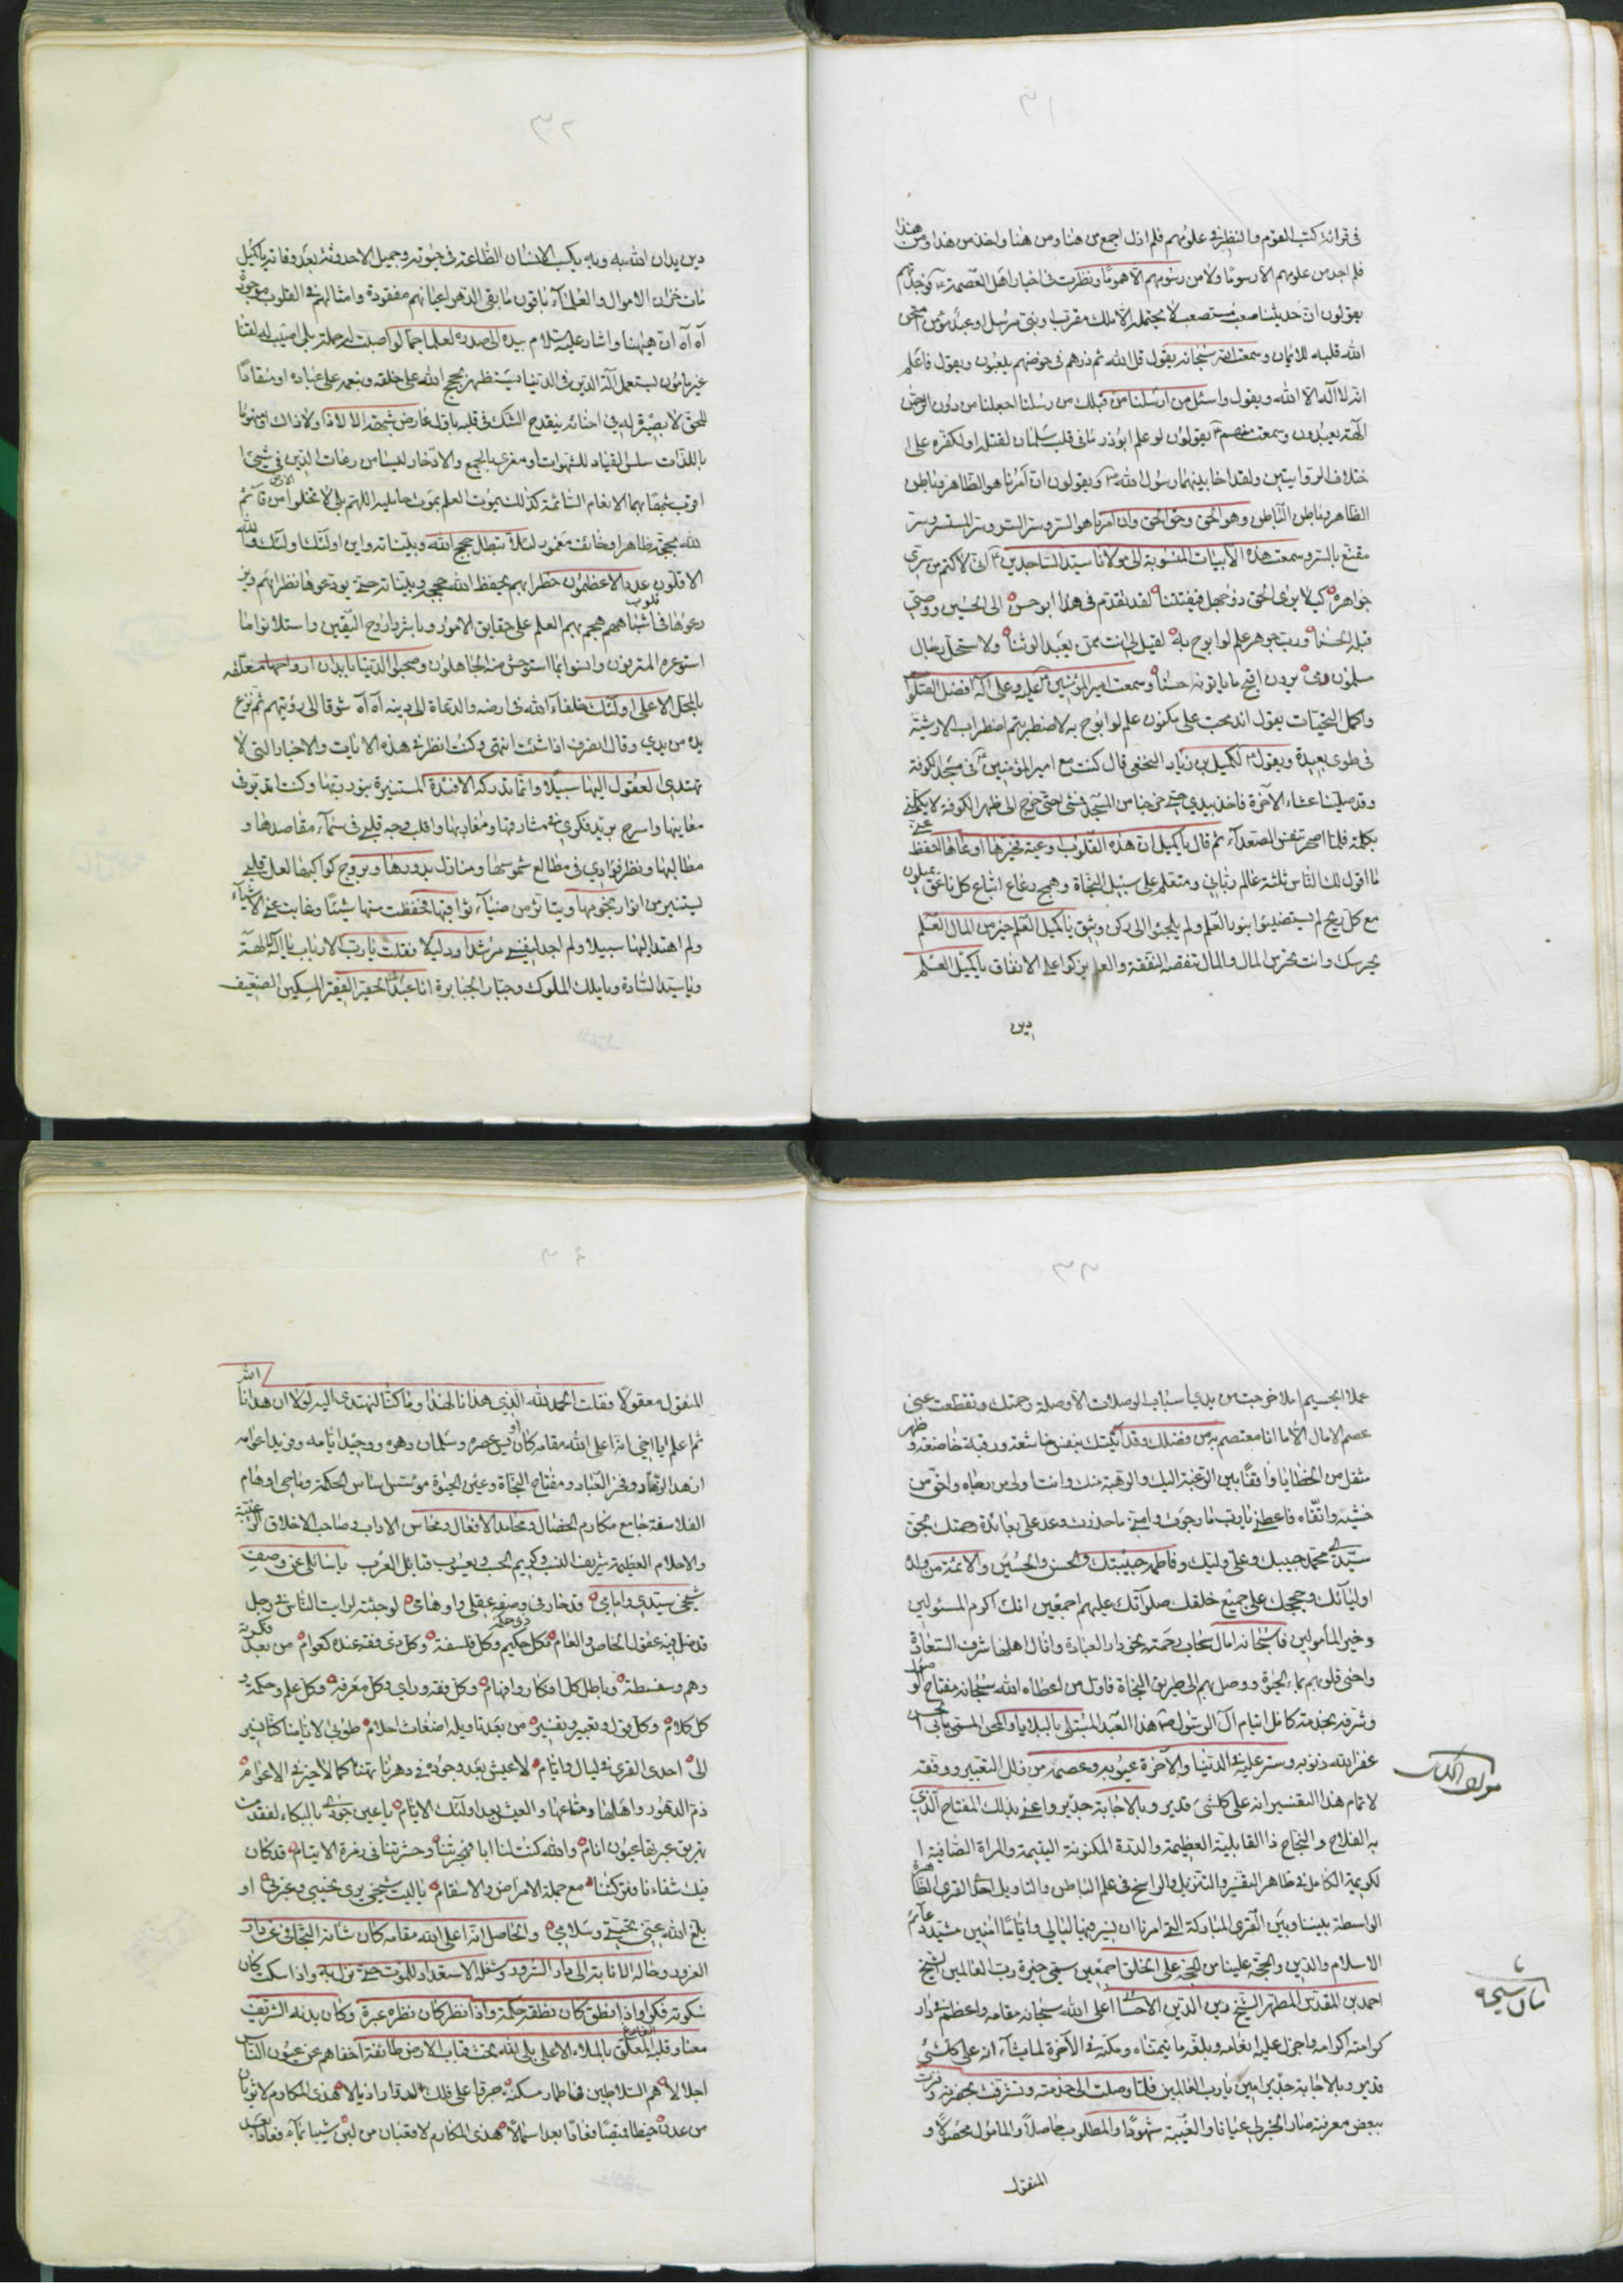 ٣١
فى قرائة كتب القوم والنظر فى علومهم فلم ازل اجمع من هنا ومن هنا واخذ من هذا ومن هذا
فلم اجد من علومهم الا رسوما ولا من رسومهم الا هموما ونظرت فى اخبار اهل العصمة ع فوجدتهم
يقولون ان حديثنا صعب مستصعب لا يحتمله الا ملك مقرب او نبى مرسل او عبد مؤمن امتحن
الله قلبه للايمان وسمعت الله سبحانه يقول قل الله ثم ذرهم فى خوضهم يلعبون ويقول فاعلم
انه لا اله الا الله ويقول واسئل من ارسلنا من قبلك من رسلنا اجعلنا من دون الرحمن
الهة يعبدون وسمعت منهم ع يقولون لو علم ابوذر ما فى قلب سلمان لقتله او لكفره على
خلاف الروايتين ولقد اخا بينهما رسول الله ص ويقولون ان امرنا هو الظاهر وباطن
الظاهر وباطن الباطن وهو الحق وحق الحق وان امرنا هو السر وسر السر وسر المستسر وسر
مقنع بالسر وسمعت هذه الابيات المنسوبة الى مولانا سيد الساجدين ع انى لاكتم من سرى
جواهره كيلا يرى الحق ذو جهل فيفتتنا لقد تقدم فى هذا ابو حسن الى الحسين ووصى
قبله الحسنا ورب جوهر علم لو ابوح به لقيل لى انت ممن يعبد الوثنا ولاستحل رجال
مسلمون دمى يرون اقبح ما ياتونه حسنا وسمعت امير المؤمنين عليه وعلى اله افضل الصلوة
واكمل التحيات يقول اندمجت على مكنون علم لو ابوح به لاضطربتم اضطراب الارشية
فى طوى بعيدة ويقول ع لكميل بن زياد النخعى قال كنت مع امير المؤمنين ع فى مسجد الكوفة
وقد صلينا عشاء الآخرة فاخذ بيدى حتى خرجنا من المسجد فمشى حتى خرج الى ظهر الكوفة لا يكلمنى
بكلمة فلما اصحر تنفس الصعداء ثم قال يا كميل ان هذه القلوب اوعية فخيرها اوعاها احفظ عنى
ما اقول لك الناس ثلثة عالم ربانى ومتعلم على سبيل النجاة وهمج رعاع اتباع كل ناعق يميلون
مع كل ريح لم يستضيئوا بنور العلم ولم يلجئوا الى ركن وثيق يا كميل العلم خير من المال العلم
يحرسك وانت تحرس المال والمال تنقصه النفقة والعلم يزكوا على الانفاق يا كميل العلم
دين
٣٢
دين يدان الله به وبه يكسب الانسان الطاعة فى حيوته وجميل الاحدوثة بعد وفاته يا كميل
مات خزان الاموال والعلماء باقون ما بقى الدهر اعيانهم مفقودة وامثالهم فى القلوب موجودة
آه آه ان هيهنا واشار عليه السلام بيده الى صدره لعلما جما لو اصبت له حملة بلى اصيب له لقنا
غير مامون يستعمل آلة الدين فى الدنيا ويستظهر بحجج الله على خلقه وبنعمه على عباده او منقادا
للحق لا بصيرة له فى احنائه ينقدح الشك فى قلبه باول عارض شبهة الا لا ذا ولا ذاك او منهوما
باللذات سلس القياد للشهوات او مغرى بالجمع والادخار ليسا من رعاة الدين فى شئ
اقرب شبها بهما الانعام السائمة كذلك يموت العلم بموت حامليه اللهم بلى لا تخلوا الارض من قائم
لله بحجة ظاهرا او خائف مغمور لئلا تبطل حجج الله وبيناته واين اولئك اولئك والله
الاقلون عددا الاعظمون خطرا بهم يحفظ الله حججه وبيناته حتى يودعوها نظرائهم ويز
رعوها فى قلوب اشباههم هجم بهم العلم على حقايق الامور وباشروا روح اليقين واستلانوا ما
استوعره المترفون وانسوا بما استوحش منه الجاهلون وصحبوا الدنيا بابدان ارواحها معلقة
بالمحل الاعلى اولئك خلفاء الله فى ارضه والدعاة الى دينه آه آه شوقا الى رؤيتهم ثم نزع
يده من يدى وقال انصرف اذا شئت انتهى وكنت انظر فى هذه الايات والاخبار التى لا
تهتدى العقول اليها سبيلا وانما تدركه الافئدة المستنيرة بنور ربها وكنت اتدبر فى
معانيها واسرح بريد فكرى فى مشارقها ومغاربها واقلب وجه قلبى فى سماء مقاصدها و
مطالبها ونظر فؤادى فى مطالع شموسها ومنازل بدورها وبروج كواكبها لعل قلبى
يستنير من انوار نجومها ويتأثر من ضياء ثواقبها فحفظت منها شيئا وغابت عنى الاشياء
ولم اهتد اليها سبيلا ولم اجد لنفسى مرشدا ودليلا فقلت يا رب الارباب يا اله الآلهة
ويا سيد السادة ويا ملك الملوك وجبار الجبابرة انا عبدك الحقير الفقير المسكين الضعيف
٣٣
عملا الجسيم املا خرجت من يدى اسباب الوصلات الا وصلة رحمتك وتقطعت عنى
عصم الامال الا ما انا معتصم به من فضلك وقد اتيتك بنفس خاشعة ورقبة خاضعة وظهر
مثقل من الخطايا واقفا بين الرغبة اليك والرهبة منك وانت اولى من رجاه واحق من
خشيه واتقاه فاعطنى يا رب ما رجوت وامنى ما حذرت وعد على بعائدة رحمتك بحق
سيدى محمد حبيبك وعلى وليك وفاطمة حبيبتك والحسن والحسين والائمة من ولده
اوليائك وحججك على جميع خلقك صلواتك عليهم اجمعين انك اكرم المسئولين
وخير المأمولين فاسبحانه امال سحاب رحمته نحو دار العبادة وانال اهلها شرف السعادة
واحيى قلوبهم بماء الحيوة ووصل بهم الى طريق النجاة فاول من اعطاه الله سبحانه مفتاح الوصول
وشرفه بخدمة كافل ايتام آل الرسول ص هذا العبد المبتلى بالبلايا والمحن المسمى بابى الحسن
غفر الله ذنوبه وستر عليه فى الدنيا والآخرة عيوبه وعصمه من زلل التعبير ووفقه
لاتمام هذا التفسير انه على كلشئ قدير وبالاجابة جدير واعنى بذلك المفتاح الذى
به الفلاح والنجاح ذا القابلية العظيمة والدرة المكنونة اليتيمة والمرآة الصافية ا
لكريمة الكامل فى ظاهر التفسير والتنزيل والراسخ فى علم الباطن والتاويل احد القرى الظاهرة
الواسطة بيننا وبين القرى المباركة التى امرنا ان نسير فيها ليالى واياما امنين مشيد دعائم
الاسلام والدين والحجة علينا من الحجة على الخلق اجمعين سمى خيرة رب العالمين الشيخ
احمد بن المقدس المطهر الشيخ زين الدين الاحسائى اعلى الله سبحانه مقامه واعظم فى دار
كرامته اكرامه واجزل عليه انعامه وبلغه ما يتمناه ومكنه فى الآخرة لما يشاء انه على كلشئ
قدير وبالاجابة جدير امين يا رب العالمين فلما وصلت الى خدمته وتشرفت بحضرته وفزت
ببعض معرفته صار الخبر لى عيانا والغيبة شهودا والمطلوب حاصلا والمامول محصولا و
المنقول
مولد الكتاب
٣٤
المنقول معقولا فقلت الحمد لله الذى هدانا لهذا وما كنا لنهتدى اليه لولا ان هدانا الله
ثم اعلم ايا اخى انه اعلى الله مقامه كان اويس عصره وسلمان دهره ووحيد ايامه وفريد اعوامه
ازهد الزهاد وفخر العباد ومفتاح النجاة وعين الحيوة مؤسس اساس الحكمة وماحى اوهام
الفلاسفة جامع مكارم الخصال ومحامد الافعال ومحاسن الاداب وصاحب الاخلاق الرغيبة
والاحلام العظيمة شريف النسب وكريم الحسب ويعسوب قبائل العرب يا سائلى عن وصف
شيخى سيدى وامامى قد حار فى وصفه عقلى واوهامى لو جئته لرايت الناس فى رجل
قد ضل فيه عقول الخاص والعام فكل حكيم وكل فلسفة وكل ذى فقه عنده كعوام من بعد
وهم وسفسطة وباطل كل افكار وافهام وكل فقه وراى وكل معرفة وكل علم وحكمة و
كل كلام وكل قول وتعبير وتفسير من بعد تاويله اضغاث احلام طوبى لايامنا كنا نسير
الى احدى القرى فى ليال وايام لا عيش بعد وجوده فى دهرنا تمتنا كما لا خير فى الاعوام
ذم الدهور واهلها ومتاعها والعيش بعد اولئك الايام يا عين جودى بالبكاء لفقد من
تهريق عبرتها عيون انام والله كنت لنا ابا فهجرتنا وحشرتنا فى زمرة الايتام قد كان
فيك شفاءنا فتركتنا مع جملة الامراض والاسقام يا ليت شيخى يرى نحيبى وعبرتى او
بلغ الله عنى تحيتى وسلامى والحاصل انه اعلى الله مقامه كان شانه التجافى عن دار
الغرور وحاله الانابة الى دار السرور وشغله الاستعداد للموت حتى نزل به واذا سكت كان
سكوته فكرا واذا نطق كان نطقه حكمة واذا نظر كان نظره عبرة وكان بدنه الشريف
معنا وقلبه المعلق بالملاء الاعلى بلى لله تحت قباب الارض طائفة اخفاهم عن عيون الناس
اجلالا هم السلاطين فى اطمار مسكنة جروا على فلك الخضراء اذيالا هذى المكارم لا ثوبان
من عدن خيطا قميصا فعادا بعد اسمالا هذى المكارم لا قعبان من لبن شيبا بماء فعادا بعد